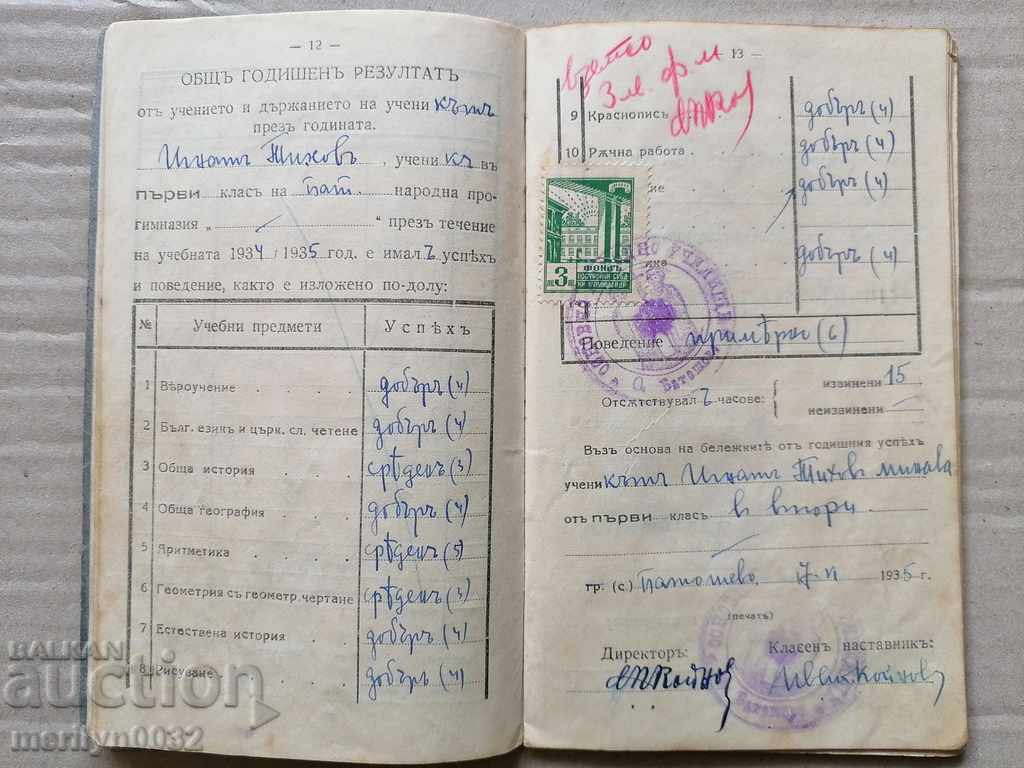 — 12 —
ОБЩЪ ГОДИШЕНЪ РЕЗУЛТАТЪ
отъ учението и държанието на учени кътъ
презъ годината.
Игнатъ Тиховъ, учени къ въ
първи класъ на Бат. народна про-
гимназия „ — “ презъ течение
на учебната 1934/1935 год. е ималъ успѣхъ
и поведение, както е изложено по-долу:
№ Учебни предмети Успѣхъ
1 Вѣроучение добъръ (4)
2 Бълг. езикъ и църк. сл. четене добъръ (4)
3 Обща история срѣденъ (3)
4 Обща география добъръ (4)
5 Аритметика срѣденъ (3)
6 Геометрия съ геометр. чертане срѣденъ (3)
7 Естествена история добъръ (4)
8 Рисуване добъръ (4)
13 —
взето
3 лв. ф м
9 Краснопись добъръ (4)
10 Рѫчна работа добъръ (4)
ние добъръ (4)
ика добъръ (4)
3 ЛВ ФОНДЪ
Поведение примѣрно (6)
Отсѫтствувалъ часове: извинени 15
неизвинени —
Възъ основа на бележкитѣ отъ годишния успѣхъ
учени кътъ Игнатъ Тиховъ минава
отъ първи класъ въ втори
гр. (с.) Батошево, 7·VI 1935 г.
(печать)
Директоръ: Класенъ наставникъ:
Ив. Койновъ
БАЛКАН
auction
merilyn0032